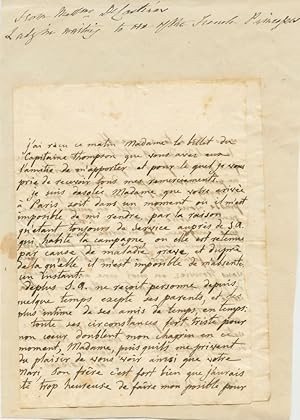 from Madme de
Lady in waiting to one of the French Princesses
j'ai recu ce matin Madame le billet du
Capitaine Thompson que vous avez eue
l'amitié de m'apporter et pour le quel je vous
prie de recevoir tous mes remerciements.
je suis desolée Madame que votre arrivée
à Paris soit dans un moment où il m'est
imposible de mi rendre, par la raison
qu'etant toujours de service auprès de S.A.
qui habite la campagne ou elle est retenue
par cause de maladie grave, et depuis
la quelle il m'est imposible de m'absenter
un instant.
deplus S.A. ne reçoit personne depuis
quelque temps excepté ses parents, et
plus intime de ses amis de temps, en temps.
toute ses circonstances fort triste pour
mon coeur doublent mon chagrin en ce
moment, Madame, puisqu'ils me privent
du plaisir de vous voir ainsi que votre
Mari. Son frère c'est fort bien que j'aurais
été trop heureuse de faire mon posible pour